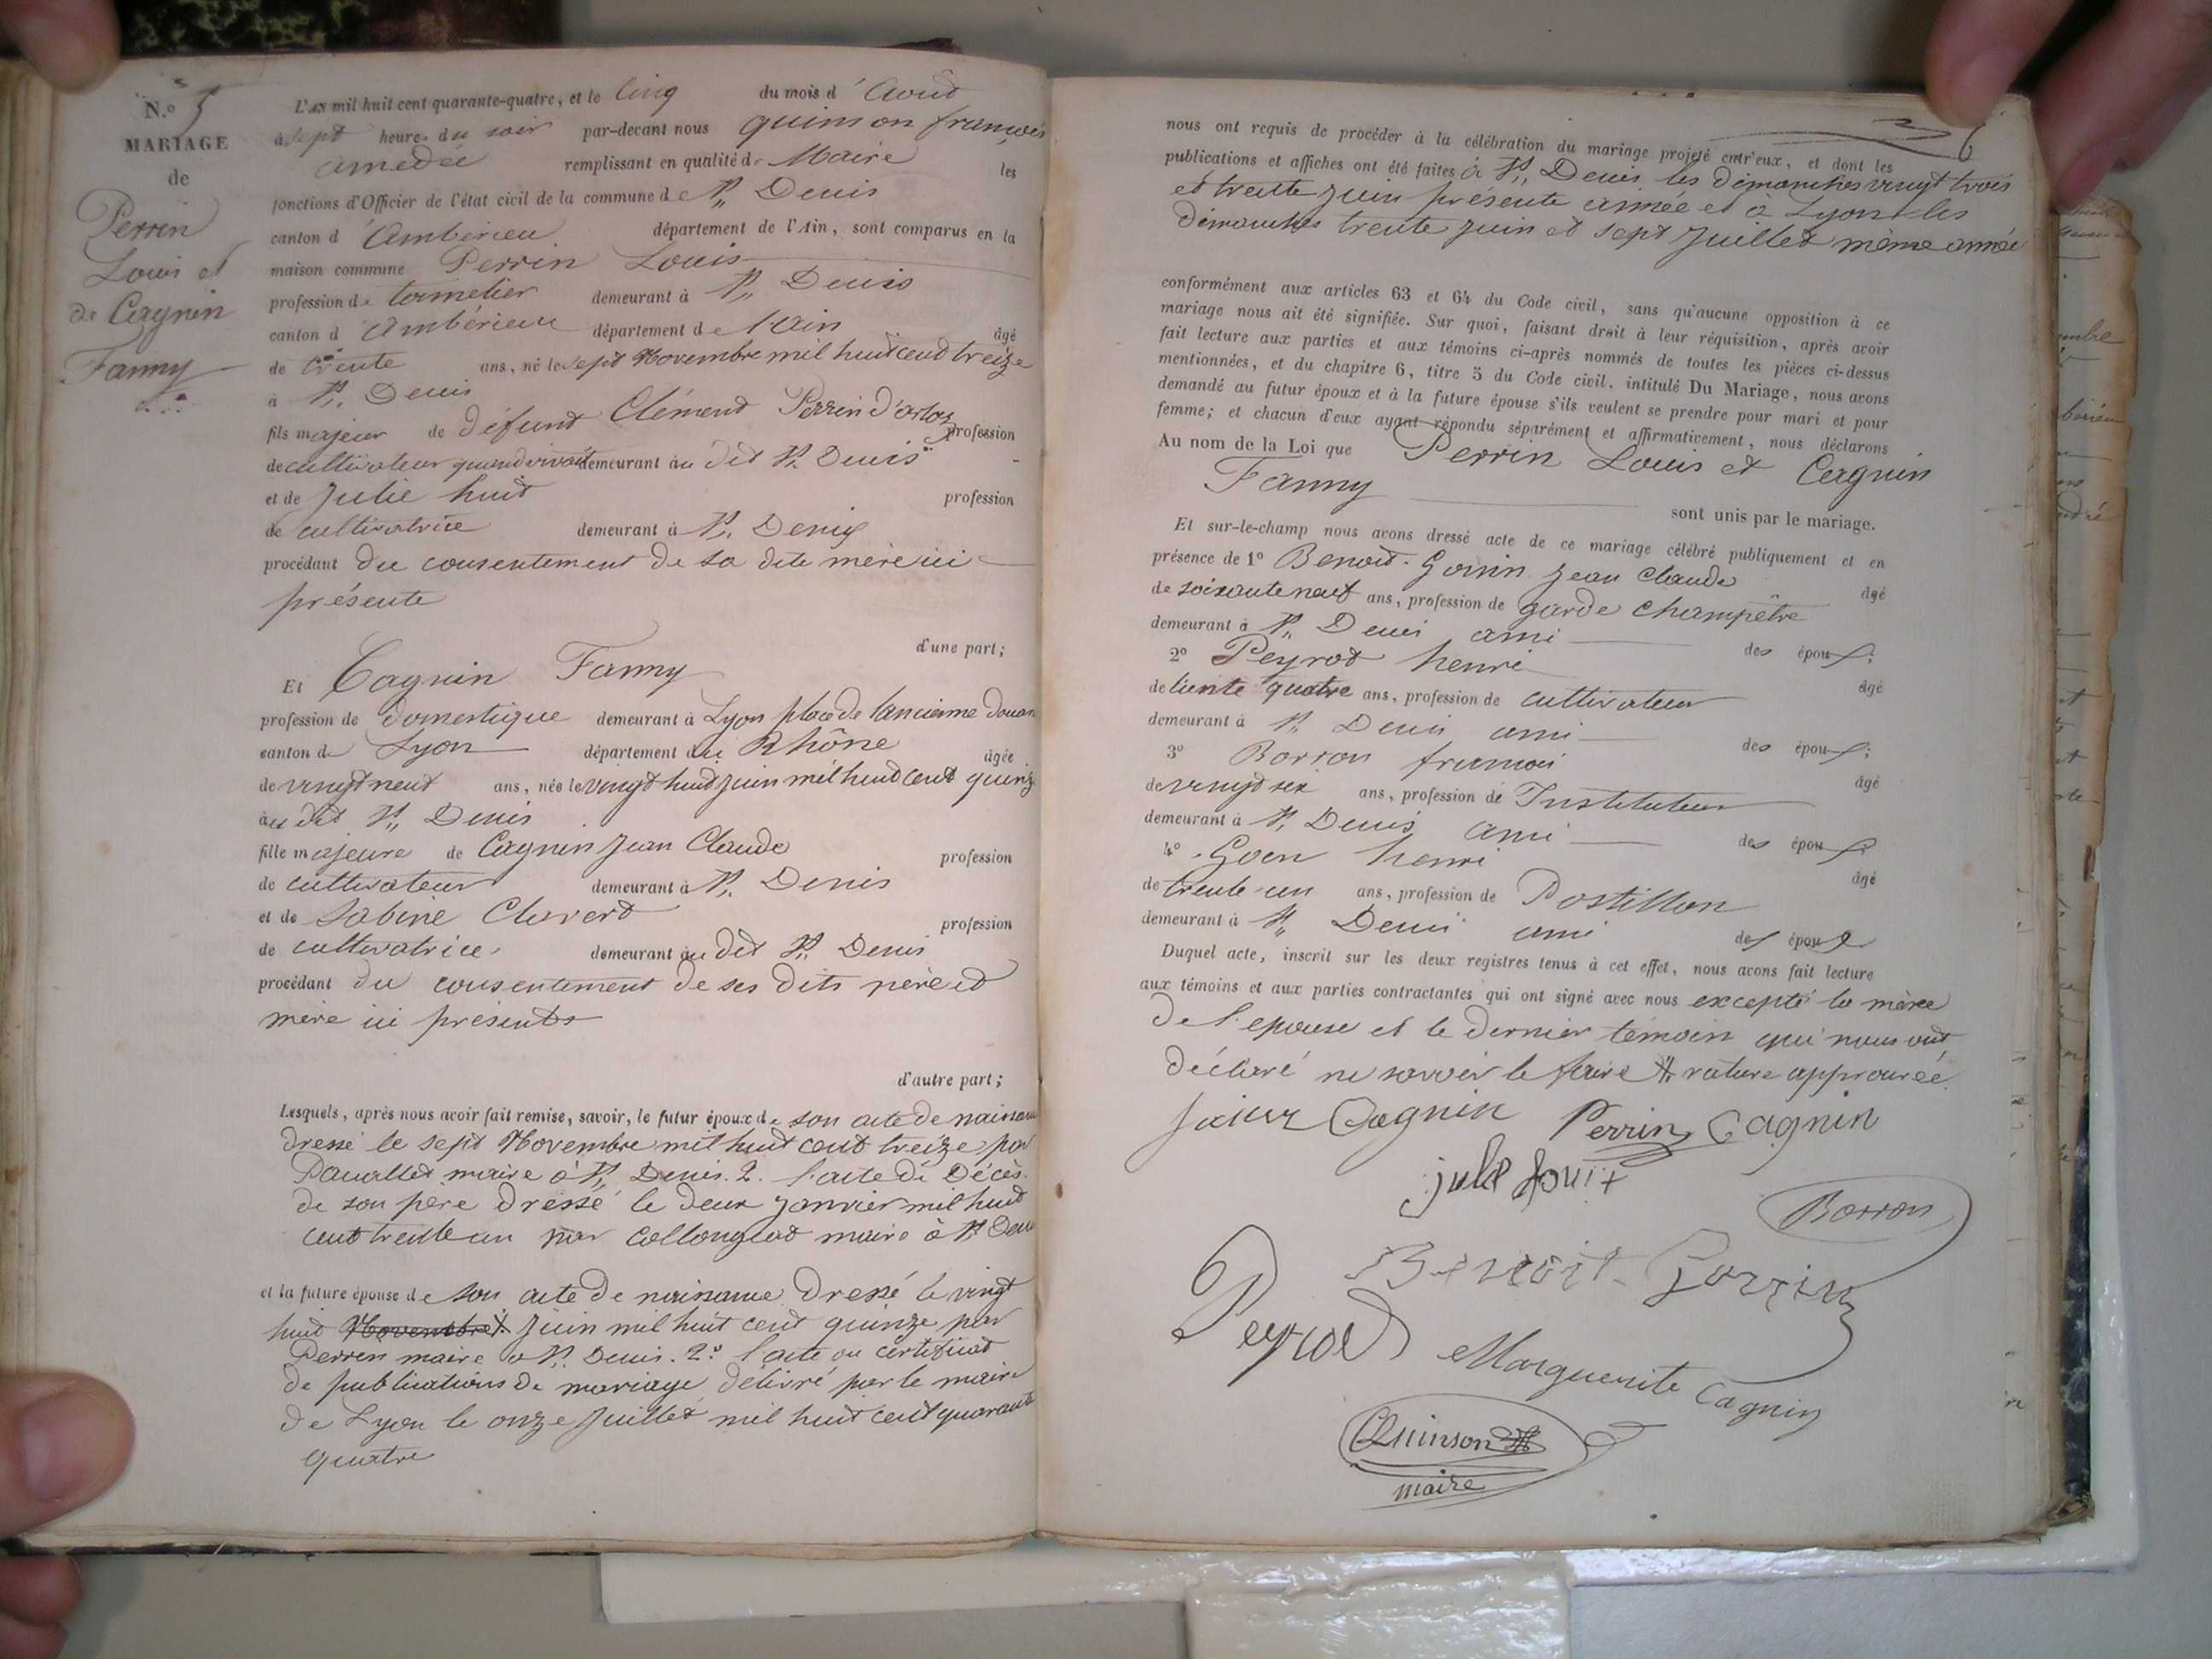 N.o 5
MARIAGE
de
Perrin
Louis et
de Cagnin
Fanny
L'AN mil huit cent quarante-quatre, et le cinq du mois d'Août
à sept heures du soir par-devant nous quinson françois
amedée remplissant en qualité de Maire les
fonctions d'Officier de l'état civil de la commune de St Denis
canton d'Ambérieu département de l'Ain, sont comparus en la
maison commune Perrin Louis
profession de tonnelier demeurant à St Denis
canton d'Ambérieu département de l'Ain âgé
de trente ans, né le sept Novembre mil huit cent treize
à St Denis
fils majeur de défunt Clément Perrin d'arloz profession
de cultivateur quand vivait demeurant au dit St Denis
et de Julie huit profession
de cultivatrice demeurant à St Denis
procédant du consentement de sa dite mère ici
présente
d'une part;
Et Cagnin Fanny
profession de domestique demeurant à Lyon place de l'ancienne douan
canton de Lyon département du Rhône âgée
de vingt neuf ans, née le vingt huit juin mil huit cent quinz
au dit St Denis
fille majeure de Cagnin Jean Claude profession
de cultivateur demeurant à St Denis
et de Sabine Clavert profession
de cultivatrice demeurant au dit St Denis
procédant du consentement de ses dits père et
mère ici présents
d'autre part;
Lesquels, après nous avoir fait remise, savoir, le futur époux de son acte de naissan
dressé le sept Novembre mil huit cent treize par
maire à St Denis. 2. l'acte de Décès
de son père dressé le deux janvier mil huit
cent trente un par Collonglat maire à St Deni
et la future épouse de son acte de naissance dressé le vingt
huit Novembre juin mil huit cent quinze par
Perren maire à St Denis. 2.o l'acte ou certificat
de publications de mariage délivré par le maire
de Lyon le onze juillet mil huit cent quarante
quatre
6
nous ont requis de procéder à la célébration du mariage projeté entr'eux, et dont les
publications et affiches ont été faites à St Denis les dimanches vingt trois
et trente juin présente année et à Lyon les
dimanches trente juin et sept juillet même année
conformément aux articles 63 et 64 du Code civil, sans qu'aucune opposition à ce
mariage nous ait été signifiée. Sur quoi, faisant droit à leur réquisition, après avoir
fait lecture aux parties et aux témoins ci-après nommés de toutes les pièces ci-dessus
mentionnées, et du chapitre 6, titre 5 du Code civil, intitulé Du Mariage, nous avons
demandé au futur époux et à la future épouse s'ils veulent se prendre pour mari et pour
femme; et chacun d'eux ayant répondu séparément et affirmativement, nous déclarons
Au nom de la Loi que Perrin Louis et Cagnin
Fanny
sont unis par le mariage.
Et sur-le-champ nous avons dressé acte de ce mariage célébré publiquement et en
présence de 1o Benoit-Gonin Jean Claude âgé
de soixante neuf ans, profession de garde champêtre
demeurant à St Denis ami des époux;
2o Peyrod henri âgé
de trente quatre ans, profession de cultivateur
demeurant à St Denis ami des époux;
3o Borron françois âgé
de vingt six ans, profession de Instituteur
demeurant à St Denis ami des époux
4o Goen henri âgé
de trente un ans, profession de Postillon
demeurant à St Denis ami des époux
Duquel acte, inscrit sur les deux registres tenus à cet effet, nous avons fait lecture
aux témoins et aux parties contractantes qui ont signé avec nous excepté la mère
de l'épouse et le dernier témoin qui nous ont
déclaré ne savoir le faire rature approuvée.
Cagnin Perrin Cagnin
Borron
Peyrod
Marguerite Cagnin
Quinson
maire